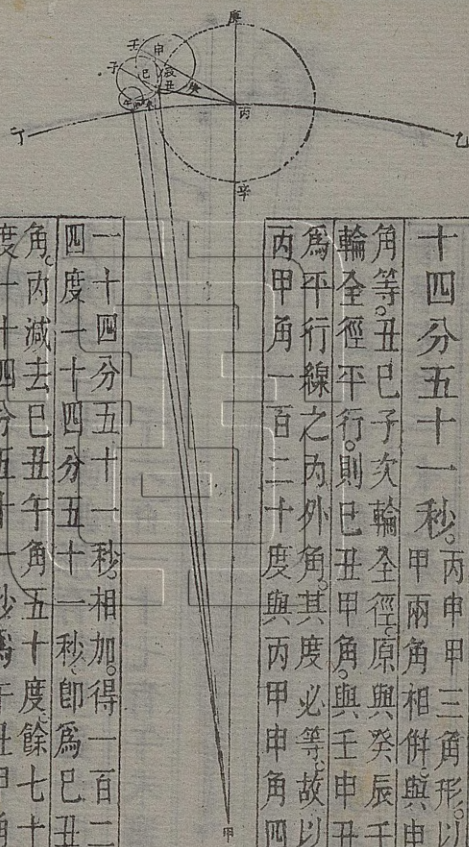 庚
壬
申
子
巳
辰
丑
癸
丙
丁
乙
辛
甲
十四分五十一秒。丙申甲三角形。以
甲兩角相倂。與申
角等。丑巳子次輪全徑。原與癸辰壬
輪全徑平行。則巳丑甲角。與壬申丑
爲平行線之內外角。其度必等。故以
丙甲角一百二十度與丙甲申角四
一十四分五十一秒。相加。得一百二
四度一十四分五十一秒。卽爲巳丑
角。內減去巳丑午角五十度。餘七十
度一十四分五十一秒爲午丑甲角